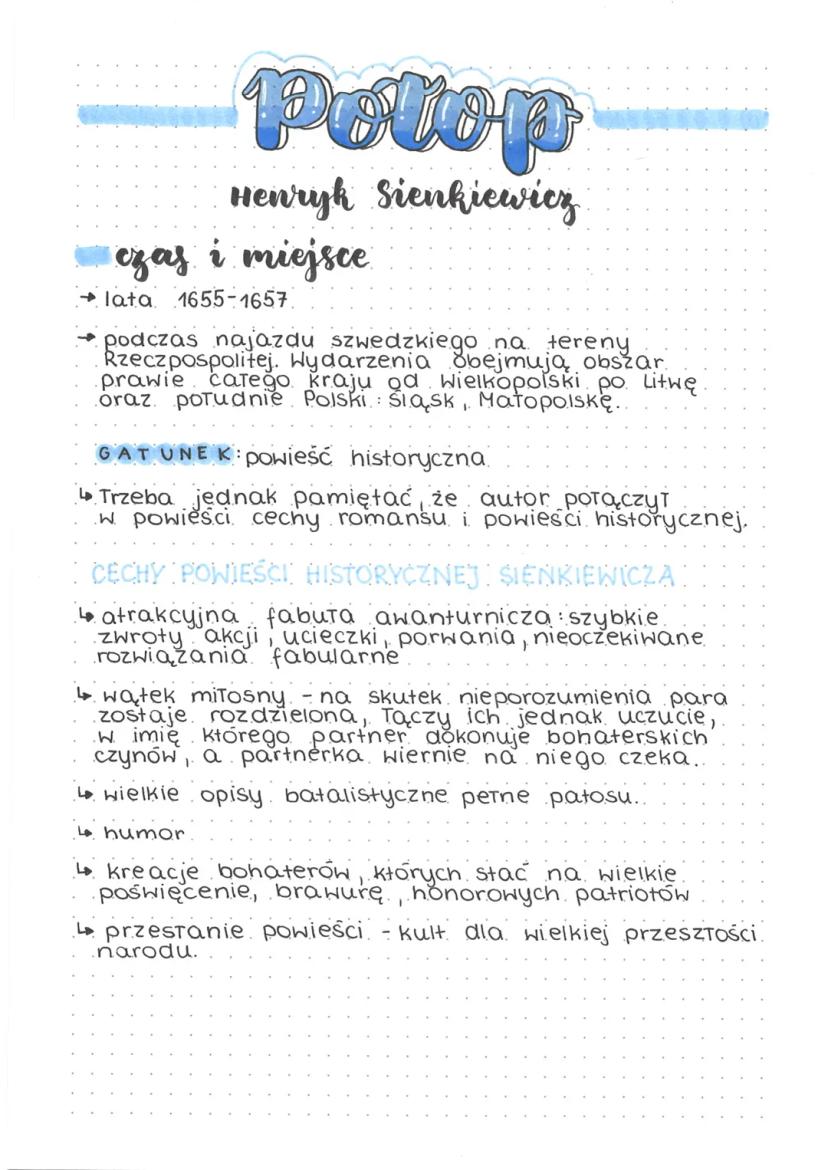 Potop
Henryk Sienkiewicz
czas i miejsce
→ lata 1655-1657
→ podczas najazdu szwedzkiego na tereny
Rzeczpospolitej. Wydarzenia obejmują obszar
prawie całego kraju od Wielkopolski po Litwę
oraz południe Polski: śląsk, Małopolskę.
GATUNEK: powieść historyczna
↳ Trzeba jednak pamiętać, że autor połączył
w powieści cechy romansu i powieści historycznej.
CECHY POWIEŚCI HISTORYCZNEJ SIENKIEWICZA
↳ atrakcyjna fabuła awanturnicza: szybkie
zwroty akcji, ucieczki, porwania, nieoczekiwane
rozwiązania fabularne
↳ wątek miłosny - na skutek nieporozumienia para
zostaje rozdzielona, łączy ich jednak uczucie,
w imię którego partner dokonuje bohaterskich
czynów, a partnerka wiernie na niego czeka.
↳ wielkie opisy batalistyczne pełne patosu.
↳ humor
↳ kreacje bohaterów, których stać na wielkie
poświęcenie, brawurę, honorowych patriotów
↳ przesłanie powieści - kult dla wielkiej przeszłości
narodu.